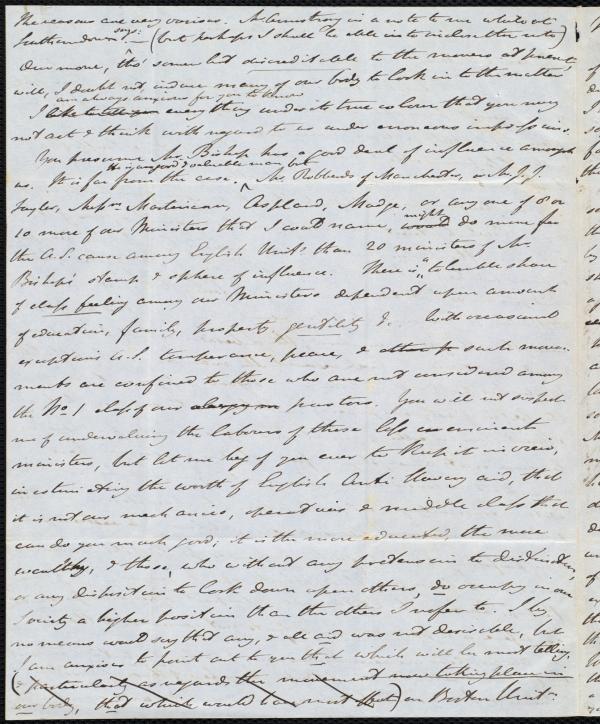 The reasons are very various. Mr Armstrong in a note to me whilst at
Southampton says: — (but perhaps I shall be able in to inclose the note)
One more, tho' somewhat discreditable to the movers at present,
will, I doubt not, induce many of our body to look in to the matter.
am always anxious for you to know
I like to tell you everything under its true colors that you may
not act & think with regard to us under erroneous impressions.
You presume Mr. Bishop has a good deal of influence amongst
He is a good & valuable man, but
us. It is far from the case. Mr. Robberds of Manchester, or Mr. J. J.
Tayler, Messrs Martineau, Aspland, Madge, or any one of 8 or
10 more of our Ministers that I could name, might would do more for
the A.S. cause among English Units than 20 ministers of Mr.
Bishop's stamp & sphere of influence. There is "a" terrible share
of class feeling among our Ministers dependent upon amount
of education, family, property, gentility &c. With occasional
exceptions A.S. temperance, peace, & other such move-
ments are confined to those who are not considered among
the No 1 class of our clergymen pastors. You will not suspect
me of undervaluing the labours of these less eminent
ministers, but let me beg of you ever to keep it in view,
in estimating the worth of English Anti Slavery aid, that
it is not our mechanics, operatives & middle class that
can do you much good; it is the more educated, the more
wealthy, & those, who without any pretension to distinction,
or any disposition to look down upon others, do occupy in our
Society a higher position than the others I refer to. I by
no means would say that any, & all aid was not desirable, but
I am anxious to point out to you that which will be most telling.
(& particularly as regards the movement now taking place in
our body, that which would have most effect) on Boston Units.